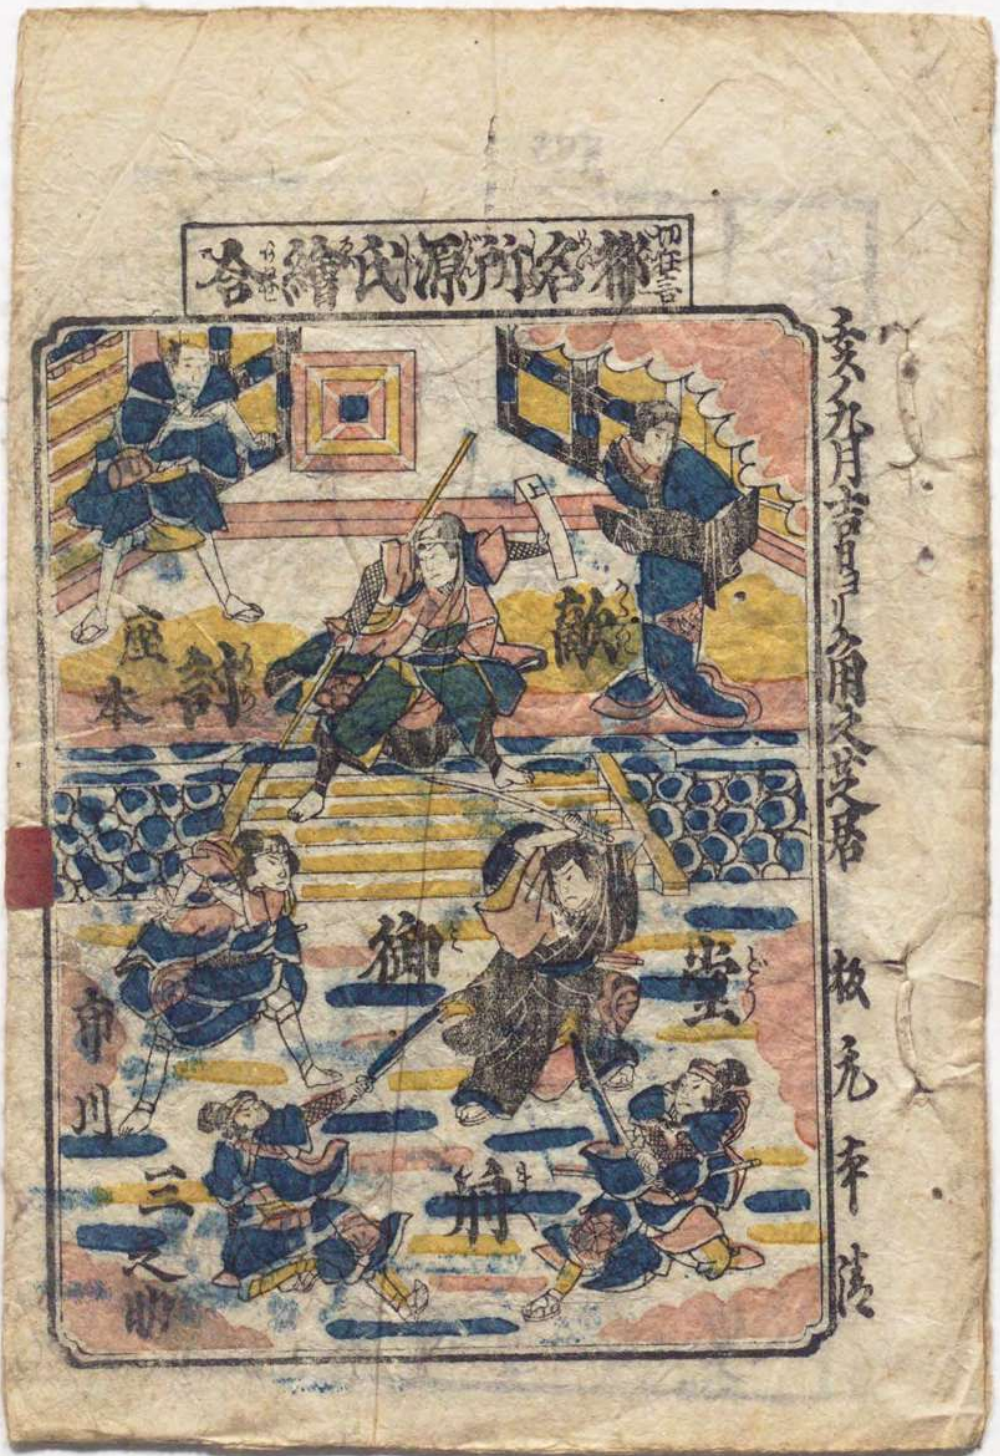 切狂言
都名所源氏繪合
亥ノ九月吉日ヨリ角之芝居
板元 本清
上
敵討
御堂前
座本
市川三之助